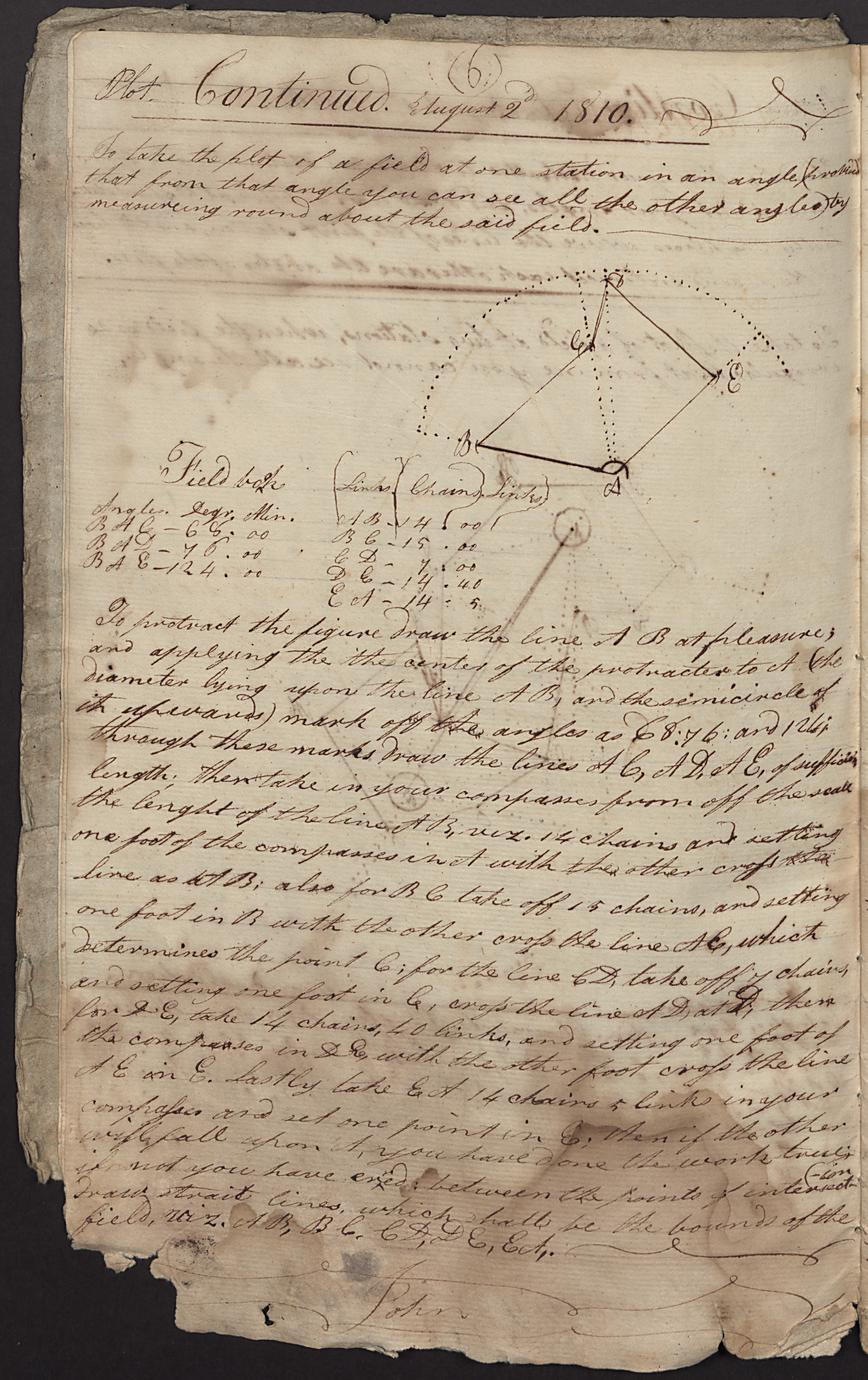 (6)
Plot. Continued. August 2d 1810.
To take the plot of a field at one station in an angle, (provided
that from that angle you can see all the other angles) by
measureing round about the said field.
D
C
E
B
A
Field book (Links) (Chains Links)
Angles. Degr. Min. A B - 14 . 00
B A C - 68 . 00 B C - 15 . 00
B A D - 76 . 00 C D - 7 . 00
B A E - 124 . 00 D E - 14 . 40
E A - 14 . 5
To protract the figure draw the line A B at pleasure;
and applying the the center of the protracter to A (the
diameter lying upon the line A B, and the semicircle of
it upwards) mark off the angles as 68: 76: and 124;
through these marks draw the lines A C, A D, A E, of sufficient
length; then take in your compasses from off the scale
the lenght of the line A B, viz. 14 chains and setting
one foot of the compasses in A with the other cross the
line as at B; also for B C take off 15 chains, and setting
one foot in B with the other cross the line A C, which
determines the point C; for the line C D, take off 7 chains,
and setting one foot in C, cross the line A D, at D, then
for D E, take 14 chains, 40 links, and setting one foot of
the compasses in D E, with the other foot cross the line
A E in E. Lastly take E A 14 chains 5 links in your
compasses and set one point in E; then if the other
will fall upon A, you have done the work truly
if not you have ered; between the points of intersect-
(-ion
draw strait lines, which shall be the bounds of the
field, viz. A B, B C, C D, D E, E A.
John